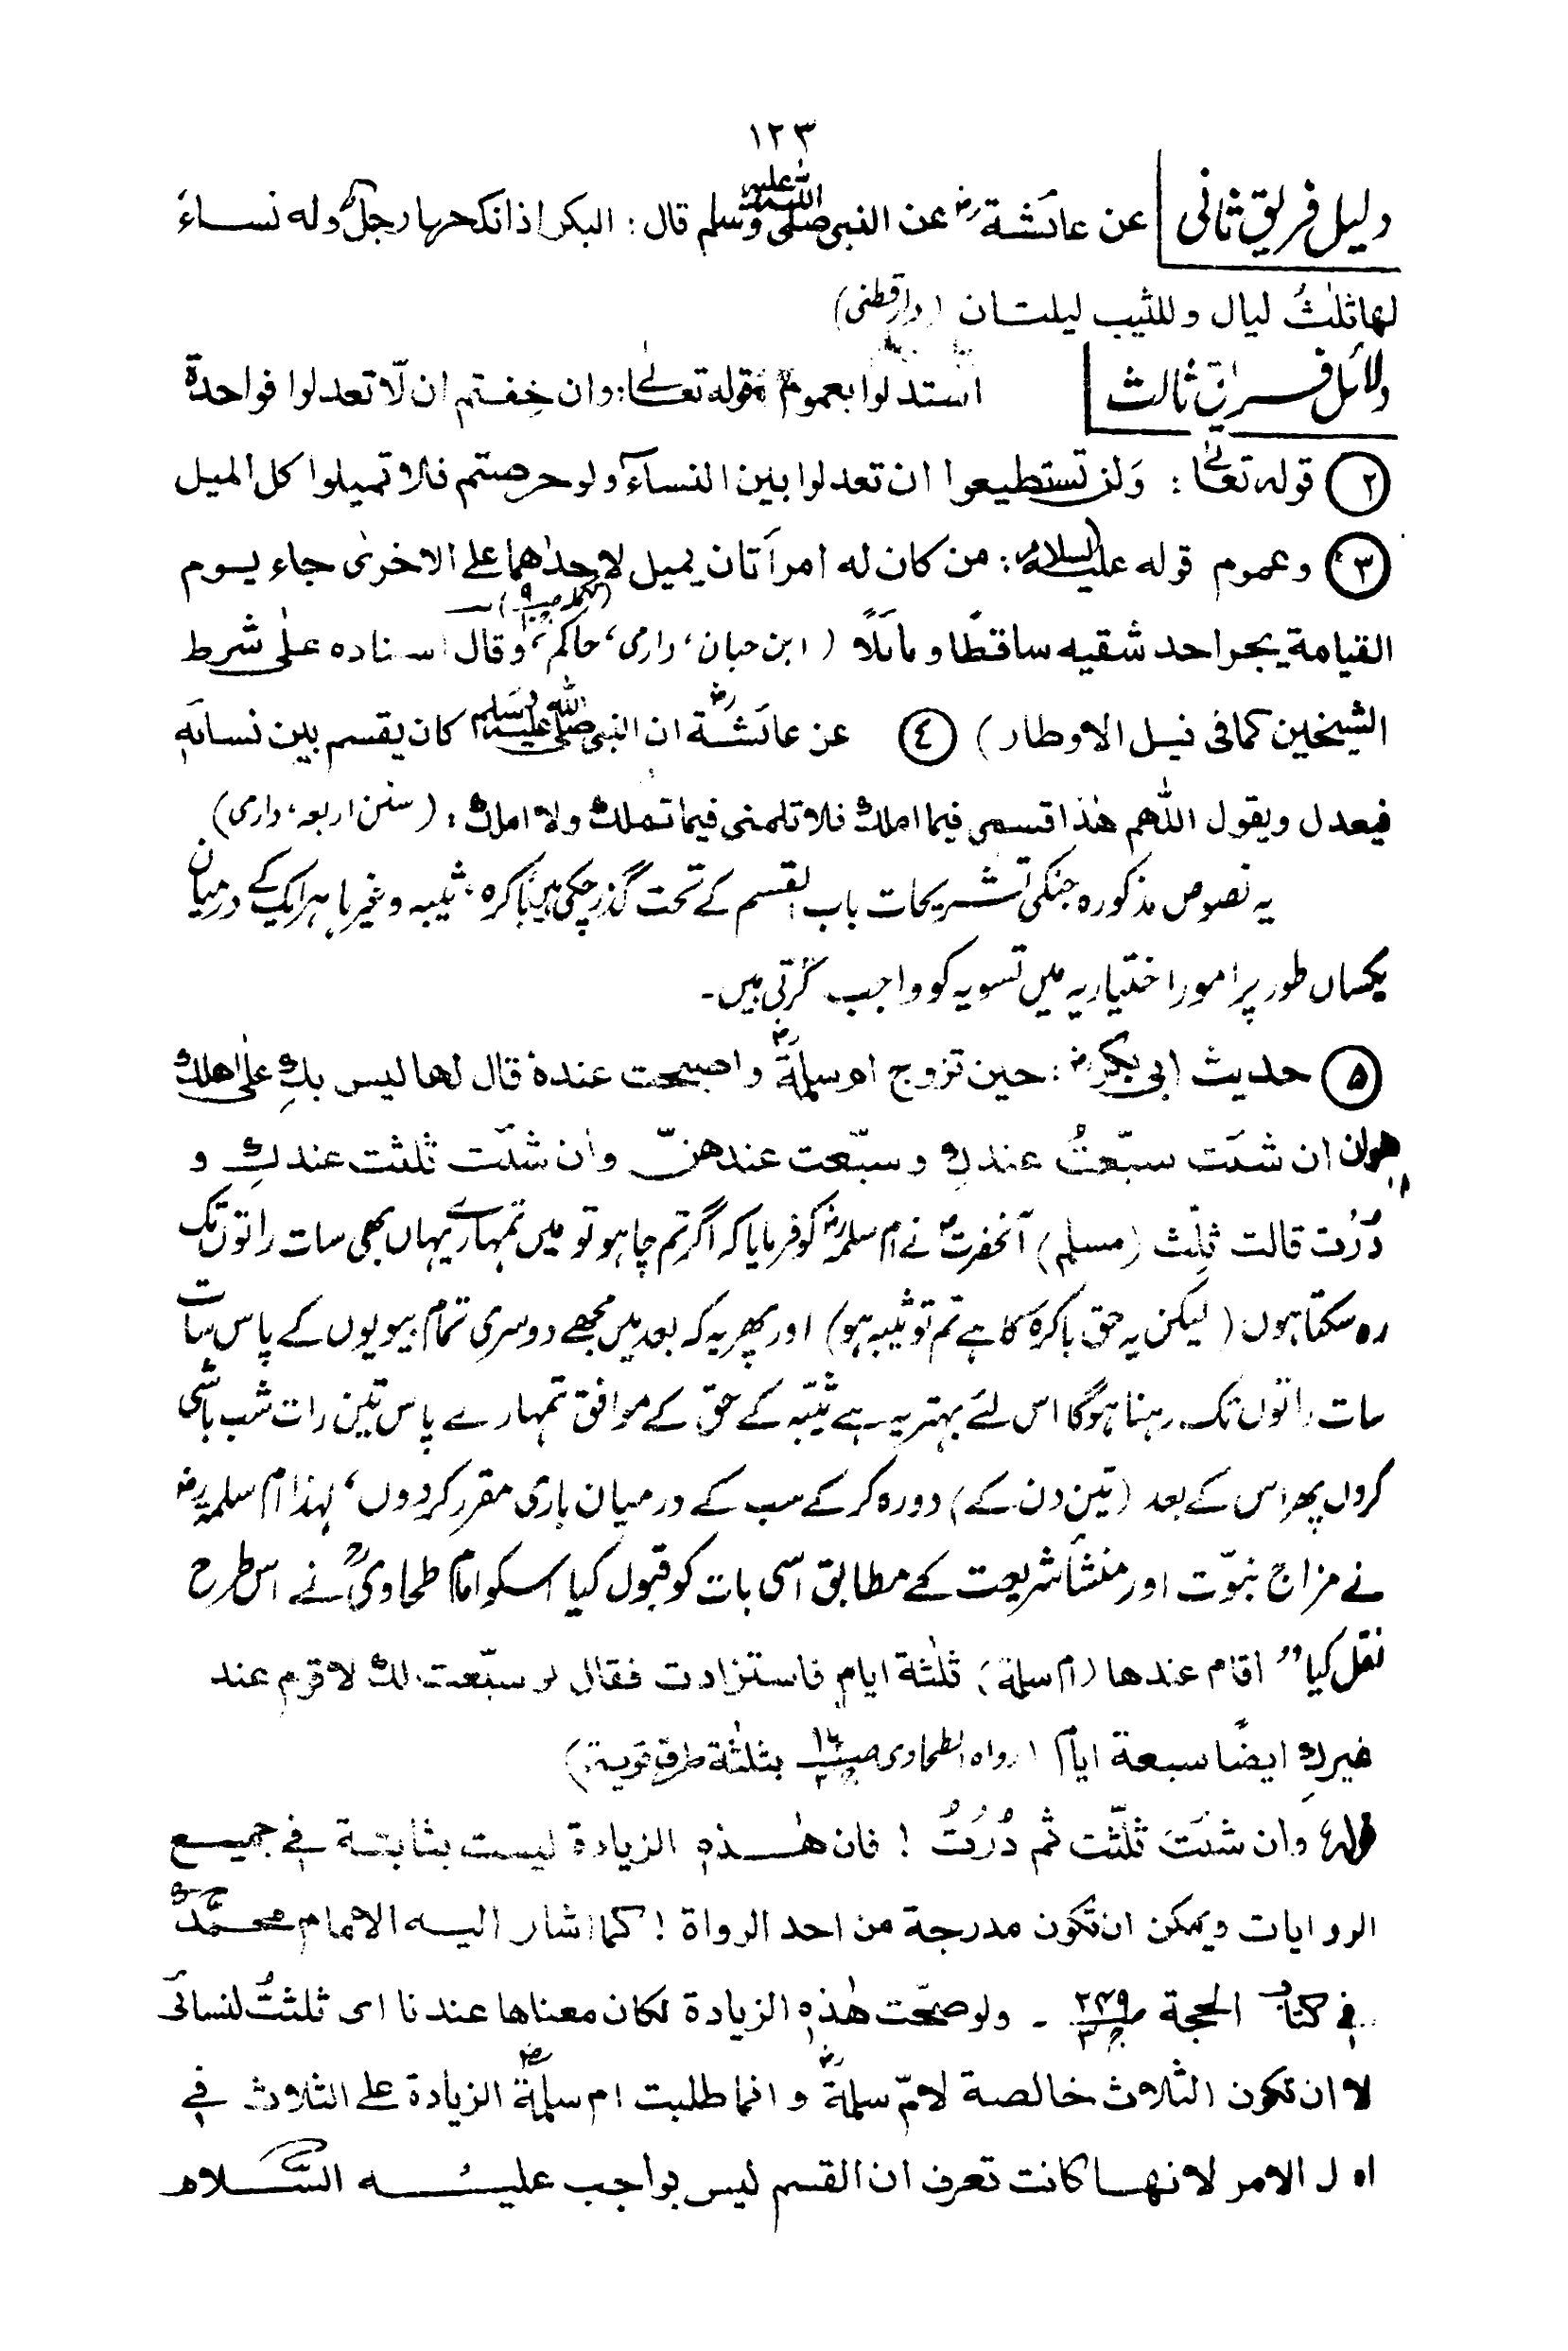 ١٢٣
دلیل فریق ثانی عن عائشة رض عن النبی صلی الله علیه وسلم قال: البکر اذا نکحها رجل وله نساء
لها ثلٰثُ لیال وللثیب لیلتان (دارقطنی)
دلائل فریق ثالث استدلوا بعموم قوله تعالےٰ: وان خِفتم ان لّا تعدلوا فواحدة
(٢) قوله تعالےٰ: وَلن تستطیعوا ان تعدلوا بین النسآء ولو حرصتم فلا تمیلوا کل المیل
(٣) وعموم قوله علیه السلام: من کان له امرأتان یمیل لاحدٰهما علے الاخرىٰ جاء یوم
القیامة یجر احد شقیه ساقطًا ومائلًا (ابن حبان، دارمی، حاکم، وقال اسناده علٰی شرط
الشیخین کما فی نیل الاوطار) (٤) عن عائشة رض ان النبی صلی الله علیه وسلم کان یقسم بین نسائه
فیعدل ویقول اللٰهم هٰذا قسمی فیما املك فلا تلمنی فیما تملك ولا املك: (سنن اربعہ، دارمی)
یہ نصوص مذکورہ جنکی تشریحات باب القسم کے تحت گذر چکی ہیں باکرہ، ثیبہ وغیرہا ہر ایک کے درمیان
یکساں طور پر امور اختیاریہ میں تسویہ کو واجب کرتی ہیں۔
(۵) حدیث ابی بکر رض: حین تزوج ام سلمة رض واصبحت عندهٗ قال لها لیس بكِ علٰی اهلك
هوان ان شئت سبّعتُ عندكِ وسبّعت عندهنّ وان شئت ثلثت عندكِ و
دُرْت قالت ثلِّث (مسلم) آنحضرتؐ نے ام سلمہ رض کو فرمایا کہ اگر تم چاہو تو میں تمہارے یہاں بھی سات راتوں تک
رہ سکتا ہوں (لیکن یہ حق باکرہ کا ہے تم تو ثیبہ ہو) اور پھر یہ کہ بعد میں مجھے دوسری تمام بیویوں کے پاس سات
سات راتوں تک رہنا ہوگا اس لئے بہتر یہ ہے ثیّبہ کے حق کے موافق تمہارے پاس تین رات شب باشی
کروں پھر اس کے بعد (تین دن کے) دورہ کر کے سب کے درمیان باری مقرر کردوں، لہذا ام سلمہ رض
نے مزاج نبوّت اور منشأ شریعت کے مطابق اسی بات کو قبول کیا اسکو امام طحاویؒ نے اس طرح
نقل کیا " اقام عندها (ام سلمة) ثلٰثة ایام فاستزادت فقال لو سبّعت لك لاقرم عند
غیركِ ایضًا سبعة ایام (رواه الطحاوی صـ١٦ بثلٰثة طرق قویة)
قوله وان شئت ثلّثت ثم دُرْتُ! فان هٰذه الزیادة لیست بثابتة فی جمیع
الروایات ویمکن ان تکون مدرجة من احد الرواة! کما اشار الیه الامام محمّدؒ
فی کتاب الحجة صـ٢٤٩ ج٣ ۔ ولو صحّت هٰذه الزیادة لکان معناها عندنا ای ثلثتُ لنسائی
لا ان تکون الثلاث خالصة لامّ سلمة رض وانما طلبت ام سلمة رض الزیادة علی الثلاث فی
اول الامر لانها کانت تعرف ان القسم لیس بواجب علیه السّلام